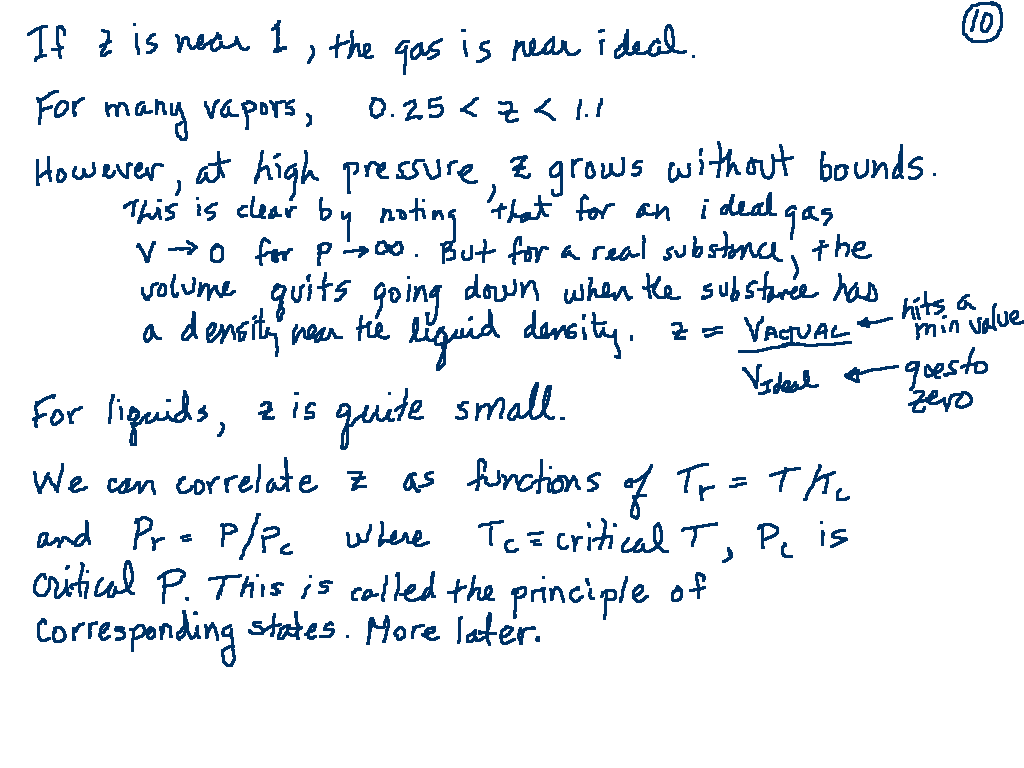 10
If z is near 1, the gas is near ideal.
For many vapors, 0.25 < z < 1.1
However, at high pressure, z grows without bounds.
This is clear by noting that for an ideal gas
V → 0 for P → ∞. But for a real substance, the
volume quits going down when the substance has
a density near the liquid density. z = VACTUAL ← hits a min value
VIdeal ← goes to zero
For liquids, z is quite small.
We can correlate z as functions of Tr = T/Tc
and Pr = P/Pc where Tc = critical T, Pc is
critical P. This is called the principle of
corresponding states. More later.